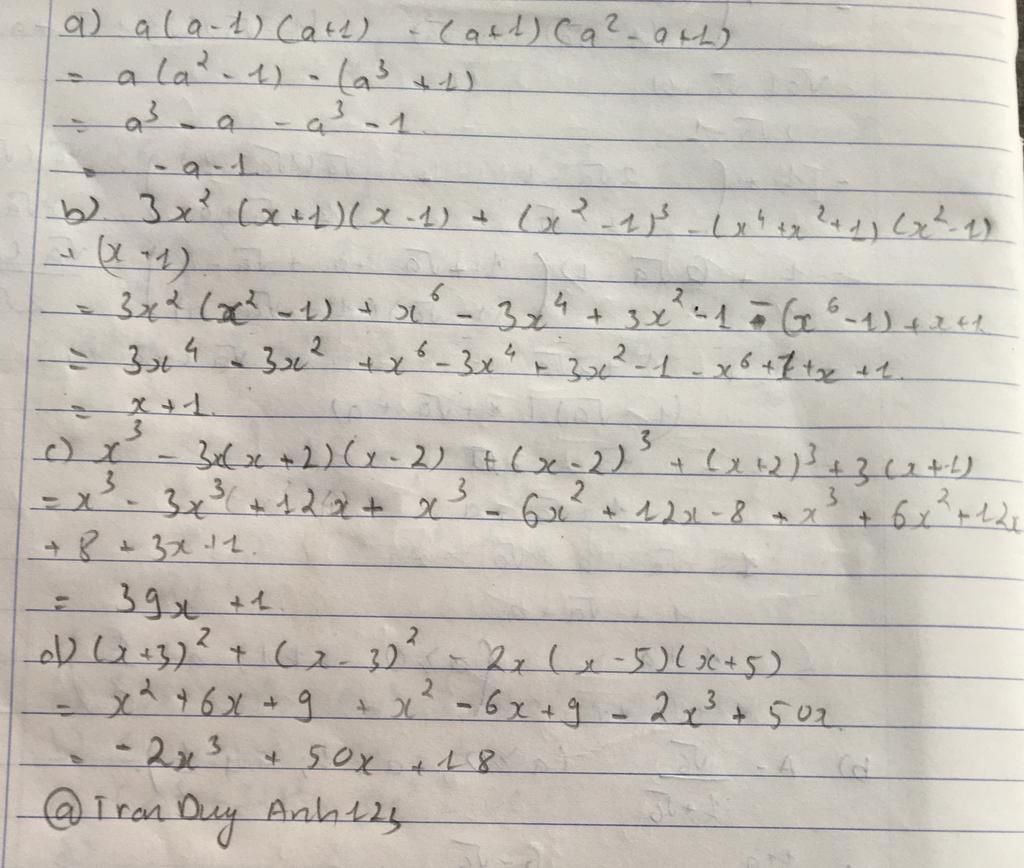 a) a(a-1)(a+1) - (a+1)(a² - a+1)
= a(a² - 1) - (a³ + 1)
= a³ - a - a³ - 1
= - a - 1
b) 3x² (x+1)(x-1) + (x² - 1)³ - (x⁴+x²+1)(x²-1)
+ (x+1)
= 3x² (x² - 1) + x⁶ - 3x⁴ + 3x² - 1 - (x⁶-1) + x+1
= 3x⁴ - 3x² + x⁶ - 3x⁴ + 3x² - 1 - x⁶ + 1 + x + 1
= x + 1
c) x³ - 3x(x+2)(x-2) + (x-2)³ + (x+2)³ + 3(x+1)
= x³ - 3x³ + 12x + x³ - 6x² + 12x - 8 + x³ + 6x² + 12x
+ 8 + 3x + 1
= 39x + 1
d) (x+3)² + (x-3)² - 2x(x-5)(x+5)
= x² + 6x + 9 + x² - 6x + 9 - 2x³ + 50x
= -2x³ + 50x + 18
@Tran Duy Anh123